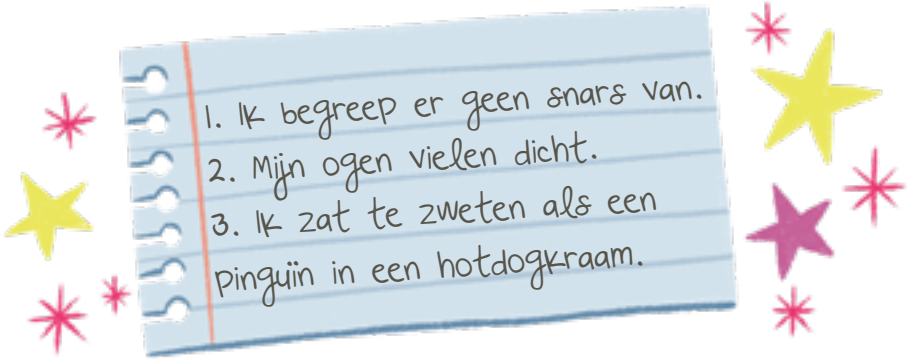 1. Ik begreep er geen snars van.
2. Mijn ogen vielen dicht.
3. Ik zat te zweten als een
pinguïn in een hotdogkraam.